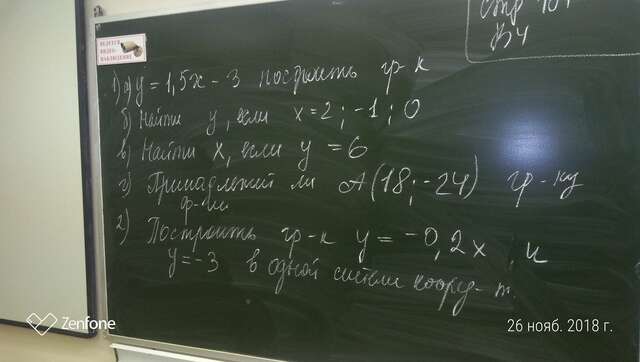 Стр
В4
ВЕДЕТСЯ
ВИДЕО-
НАБЛЮДЕНИЕ
1) а) y = 1,5x - 3 построить гр-к
б) Найти y, если x = 2; -1; 0
в) Найти x, если y = 6
г) Принадлежит ли A(18; -24) гр-ку
ф-ии
2) Построить гр-к y = -0,2x и
y = -3 в одной системе коорд-т
Zenfone
26 нояб. 2018 г.